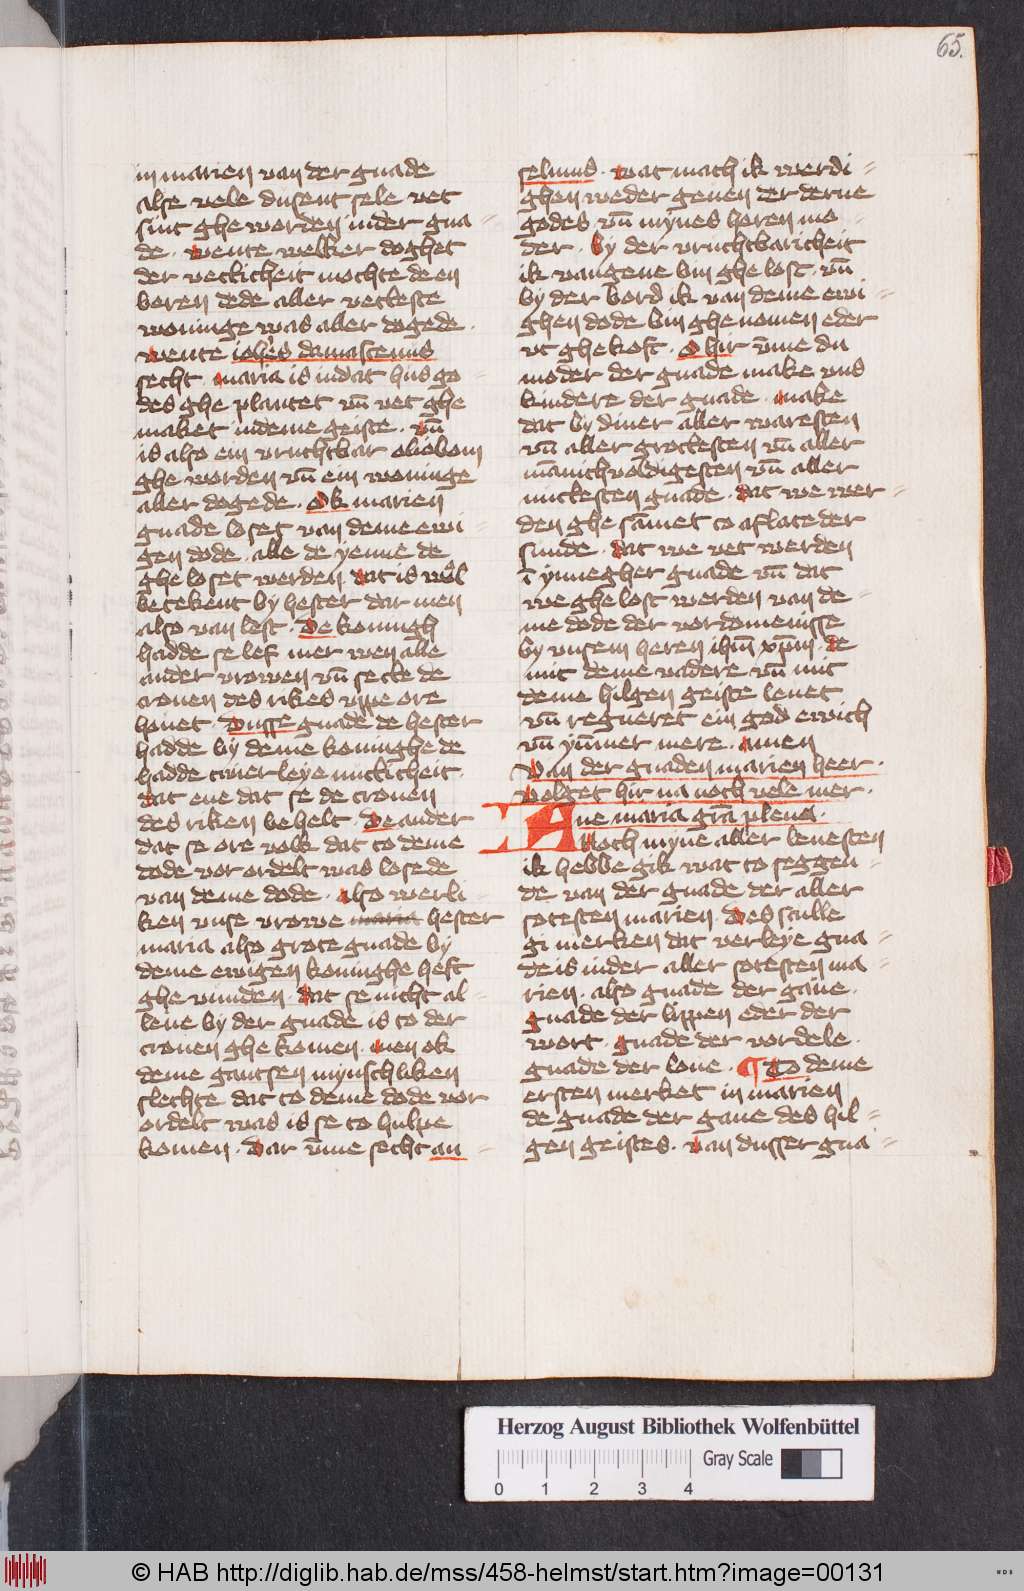 65.
in marien van der gnade
alse vele dusent sele vet
sint ghe worden inder gna=
de. wente welker doghet
der vetticheit mochte de en
boren dede aller vetteste
woninge was aller dogede.
wente ioh̄es damascenus
secht. maria is indat hus go
des ghe plantet vn̄ vet ghe
maket indeme geiste. vn̄
is also ein vruchtbar olibom
ghe worden vn̄ ein woninge
aller dogede. Ok marien
gnade loset van deme ewi=
gen dode. alle de yenne de
ghe loset werden dat is wol
betekent by hester dar men
also van lest. De koningh
hadde se lef mer wen alle
ander vrowen vn̄ sette de
cronen des rikes vppe ore
houet. Dusse gnade de hester
hadde by deme koninghe de
hadde twier leye nutticheit.
dat ene dat se de cronen
des riken behelt. De ander
dat se ore volk dat to deme
dode vor ordelt was losede
van deme dode. also werli=
ken vnse vrowe maria hester
maria also grote gnade by
deme ewigen koninghe heft
ghe vunden. dat se nicht al=
lene by der gnade is to der
cronen ghe komen. men ok
deme gantsen mynschliken
slechte dat to deme dode vor
ordelt was is se to hulpe
komen. Dar v̄me secht an=
selmus. wat mach ik werdi=
ghen weder geuen der derne
godes vn̄ mynes heren mo=
der. by der vruchtbaricheit
ik vangene bin ghe lost. vn̄
by der bord ik van deme ewi=
ghen dode bin ghe nomen eder
vt ghe kost. O hir v̄me du
moder der gnade make vns
kindere der gnade. make
dat by diner aller waresten
vn̄ aller grottesten vn̄ aller
mānichvoldigesten vn̄ aller
nuttesten gnade. dat we wer=
den ghe sāmet to aflate der
sunde. dat we vet werden
ī ynnegher gnade vn̄ dat
we ghe lost werden van de=
me dode der vordomenisse
by vnsem heren ihm̄ xp̄m. de
mit deme vadere vn̄ mit
deme hilgen geiste leuet
vn̄ regneret ein god ewich
vn̄ ym̄mer mere. amen
Van der gnaden marien heer.
volget hir na noch vele mer.
Aue maria gr̄a plena.
Noch myne aller leuesten
ik hebbe gik wat to seggen=
de van der gnade der aller
sotesten marien. Des sculle
gi merken dat verleye gna=
de is inder aller sotesten ma=
rien. also gnade der gaue.
gnade der lippen eder der
wort. gnade der vordele.
gnade der lone. ¶ To deme
ersten merket in marien
de gnade der gaue des hil=
gen geistes. van dusser gna=
Herzog August Bibliothek Wolfenbüttel
Gray Scale
0 1 2 3 4
© HAB http://diglib.hab.de/mss/458-helmst/start.htm?image=00131